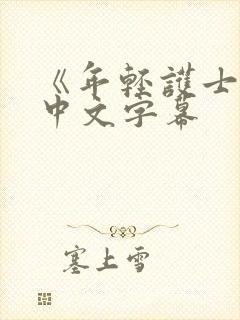 《年轻護士
中文字幕
塞上雪